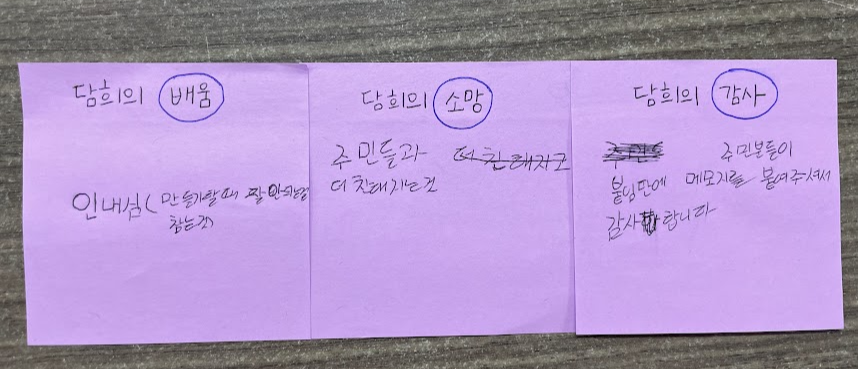 담희의 배움
인내심(만들기할때 잘 안되는걸
참는것)
담희의 소망
주민들과 더 친해지고
더 친해지는것
담희의 감사
주민분들이
붙임판에 메모지를 붙여주셔서
감사합니다